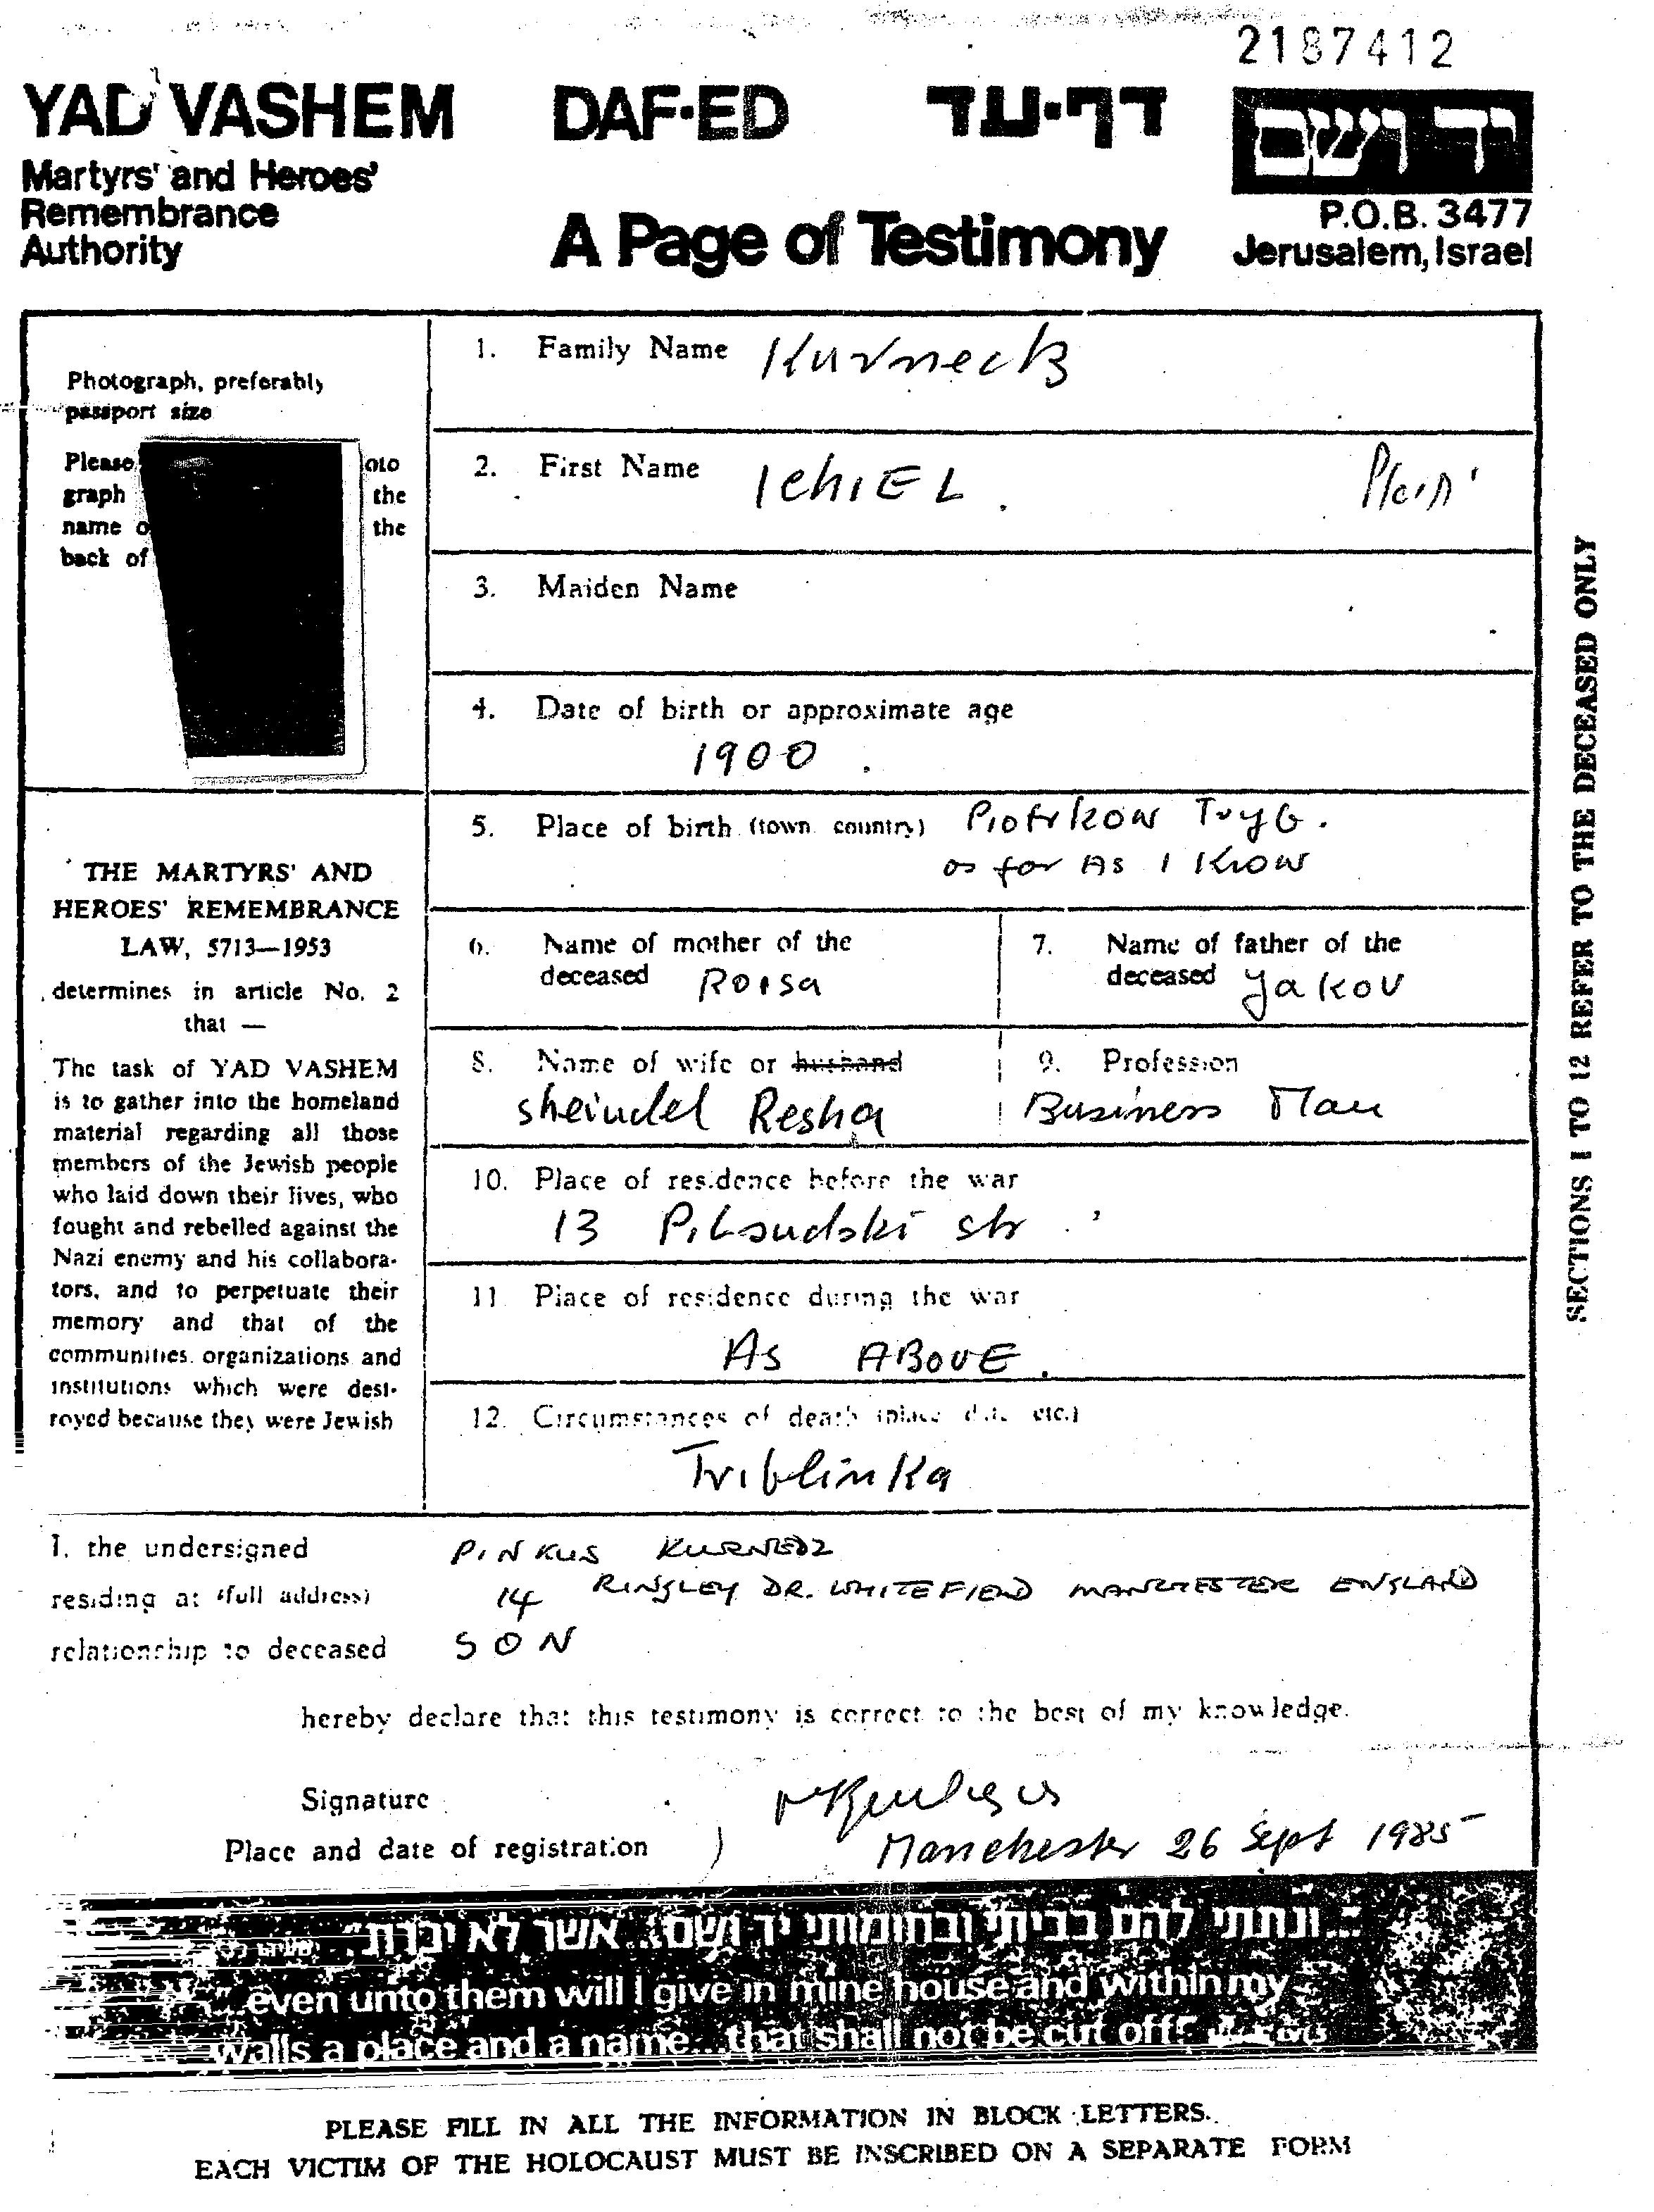 2187412
YAD VASHEM DAF-ED דף-עד יד ושם
Martyrs' and Heroes'
Remembrance
Authority
A Page of Testimony
P.O.B. 3477
Jerusalem, Israel
Photograph, preferably
passport size
Please oto
graph the
name o the
back of
THE MARTYRS' AND
HEROES' REMEMBRANCE
LAW, 5713—1953
determines in article No. 2
that —
The task of YAD VASHEM
is to gather into the homeland
material regarding all those
members of the Jewish people
who laid down their lives, who
fought and rebelled against the
Nazi enemy and his collabora-
tors, and to perpetuate their
memory and that of the
communities, organizations and
institutions which were dest-
royed because they were Jewish
1. Family Name Kurnedz
2. First Name IchIEL.
3. Maiden Name
4. Date of birth or approximate age
1900.
5. Place of birth (town, country) Piotrkow Tryb.
as far As I Know
6. Name of mother of the
deceased Roisa
7. Name of father of the
deceased Jakov
8. Name of wife or husband
sheindel Resha
9. Profession
Business Man
10. Place of residence before the war
13 Pilsudski str.
11. Place of residence during the war
As ABOVE.
12. Circumstances of death (place, date, etc.)
Triblinka
SECTIONS 1 TO 12 REFER TO THE DECEASED ONLY
I, the undersigned PINKUS KURNEDZ
residing at (full address) 14 RINGLEY DR. WHITEFIELD MANCHESTER ENGLAND
relationship to deceased SON
hereby declare that this testimony is correct to the best of my knowledge.
Signature
Place and date of registration Manchester 26 Sept 1985
"...ונתתי להם בביתי ובחומותי יד ושם... אשר לא יכרת"
"...even unto them will I give in mine house and within my
walls a place and a name...that shall not be cut off"
PLEASE FILL IN ALL THE INFORMATION IN BLOCK LETTERS.
EACH VICTIM OF THE HOLOCAUST MUST BE INSCRIBED ON A SEPARATE FORM